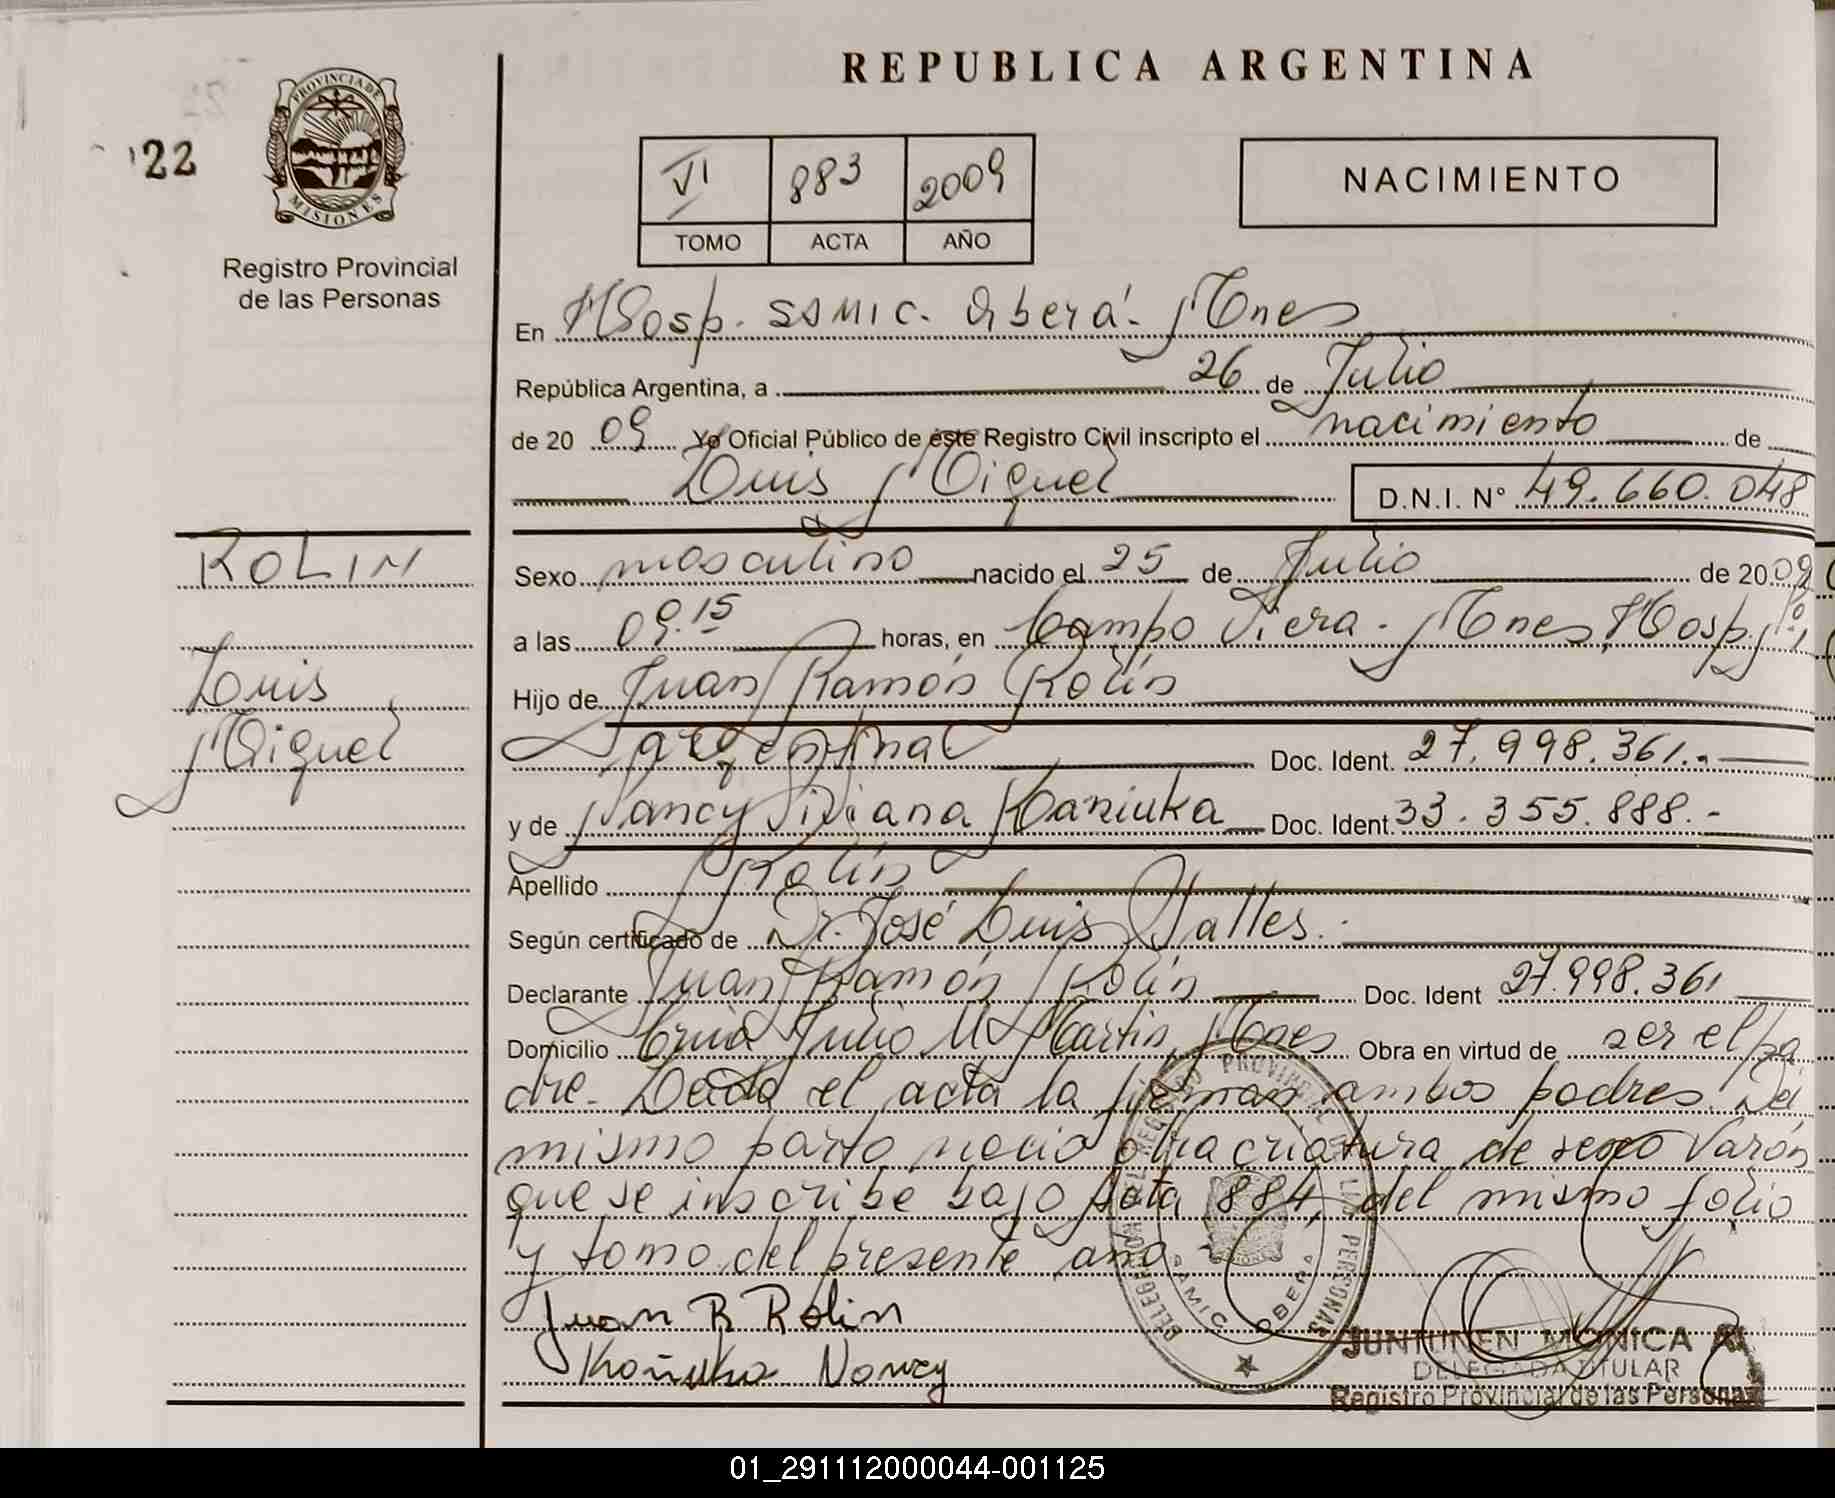 REPUBLICA ARGENTINA
22
PROVINCIA DE
MISIONES
Registro Provincial
de las Personas
VI 883 2009
TOMO ACTA AÑO
NACIMIENTO
En Hosp. SAMIC. Oberá. Mnes
República Argentina, a 26 de Julio
de 20 09 Yo Oficial Público de éste Registro Civil inscripto el nacimiento de
Luis Miguel D.N.I. N° 49.660.048
ROLIN
Luis
Miguel
Sexo masculino nacido el 25 de Julio de 2009
a las 09.15 horas, en Campo Viera. Mnes, Hosp.
Hijo de Juan Ramón Rolín
argentina Doc. Ident. 27.998.361.-
y de Nancy Viviana Kaniuka Doc. Ident. 33.355.888.-
Apellido Rolín
Según certificado de Dr. José Luis Salles.
Declarante Juan Ramón Rolín Doc. Ident 27.998.361
Domicilio Cnia Julio U. Martin, Mnes Obra en virtud de ser el pa
dre. Leida el acta la firman ambos padres. Del
mismo parto nació otra criatura de sexo Varón
que se inscribe bajo Acta 884, del mismo folio
y tomo del presente año
Juan R Rolin
Kañuka Nancy
REGISTRO PROVINCIAL DE LAS PERSONAS
SAMIC OBERA
JUNTUNEN MONICA A.
DELEGADA TITULAR
Registro Provincial de las Personas
01_291112000044-001125